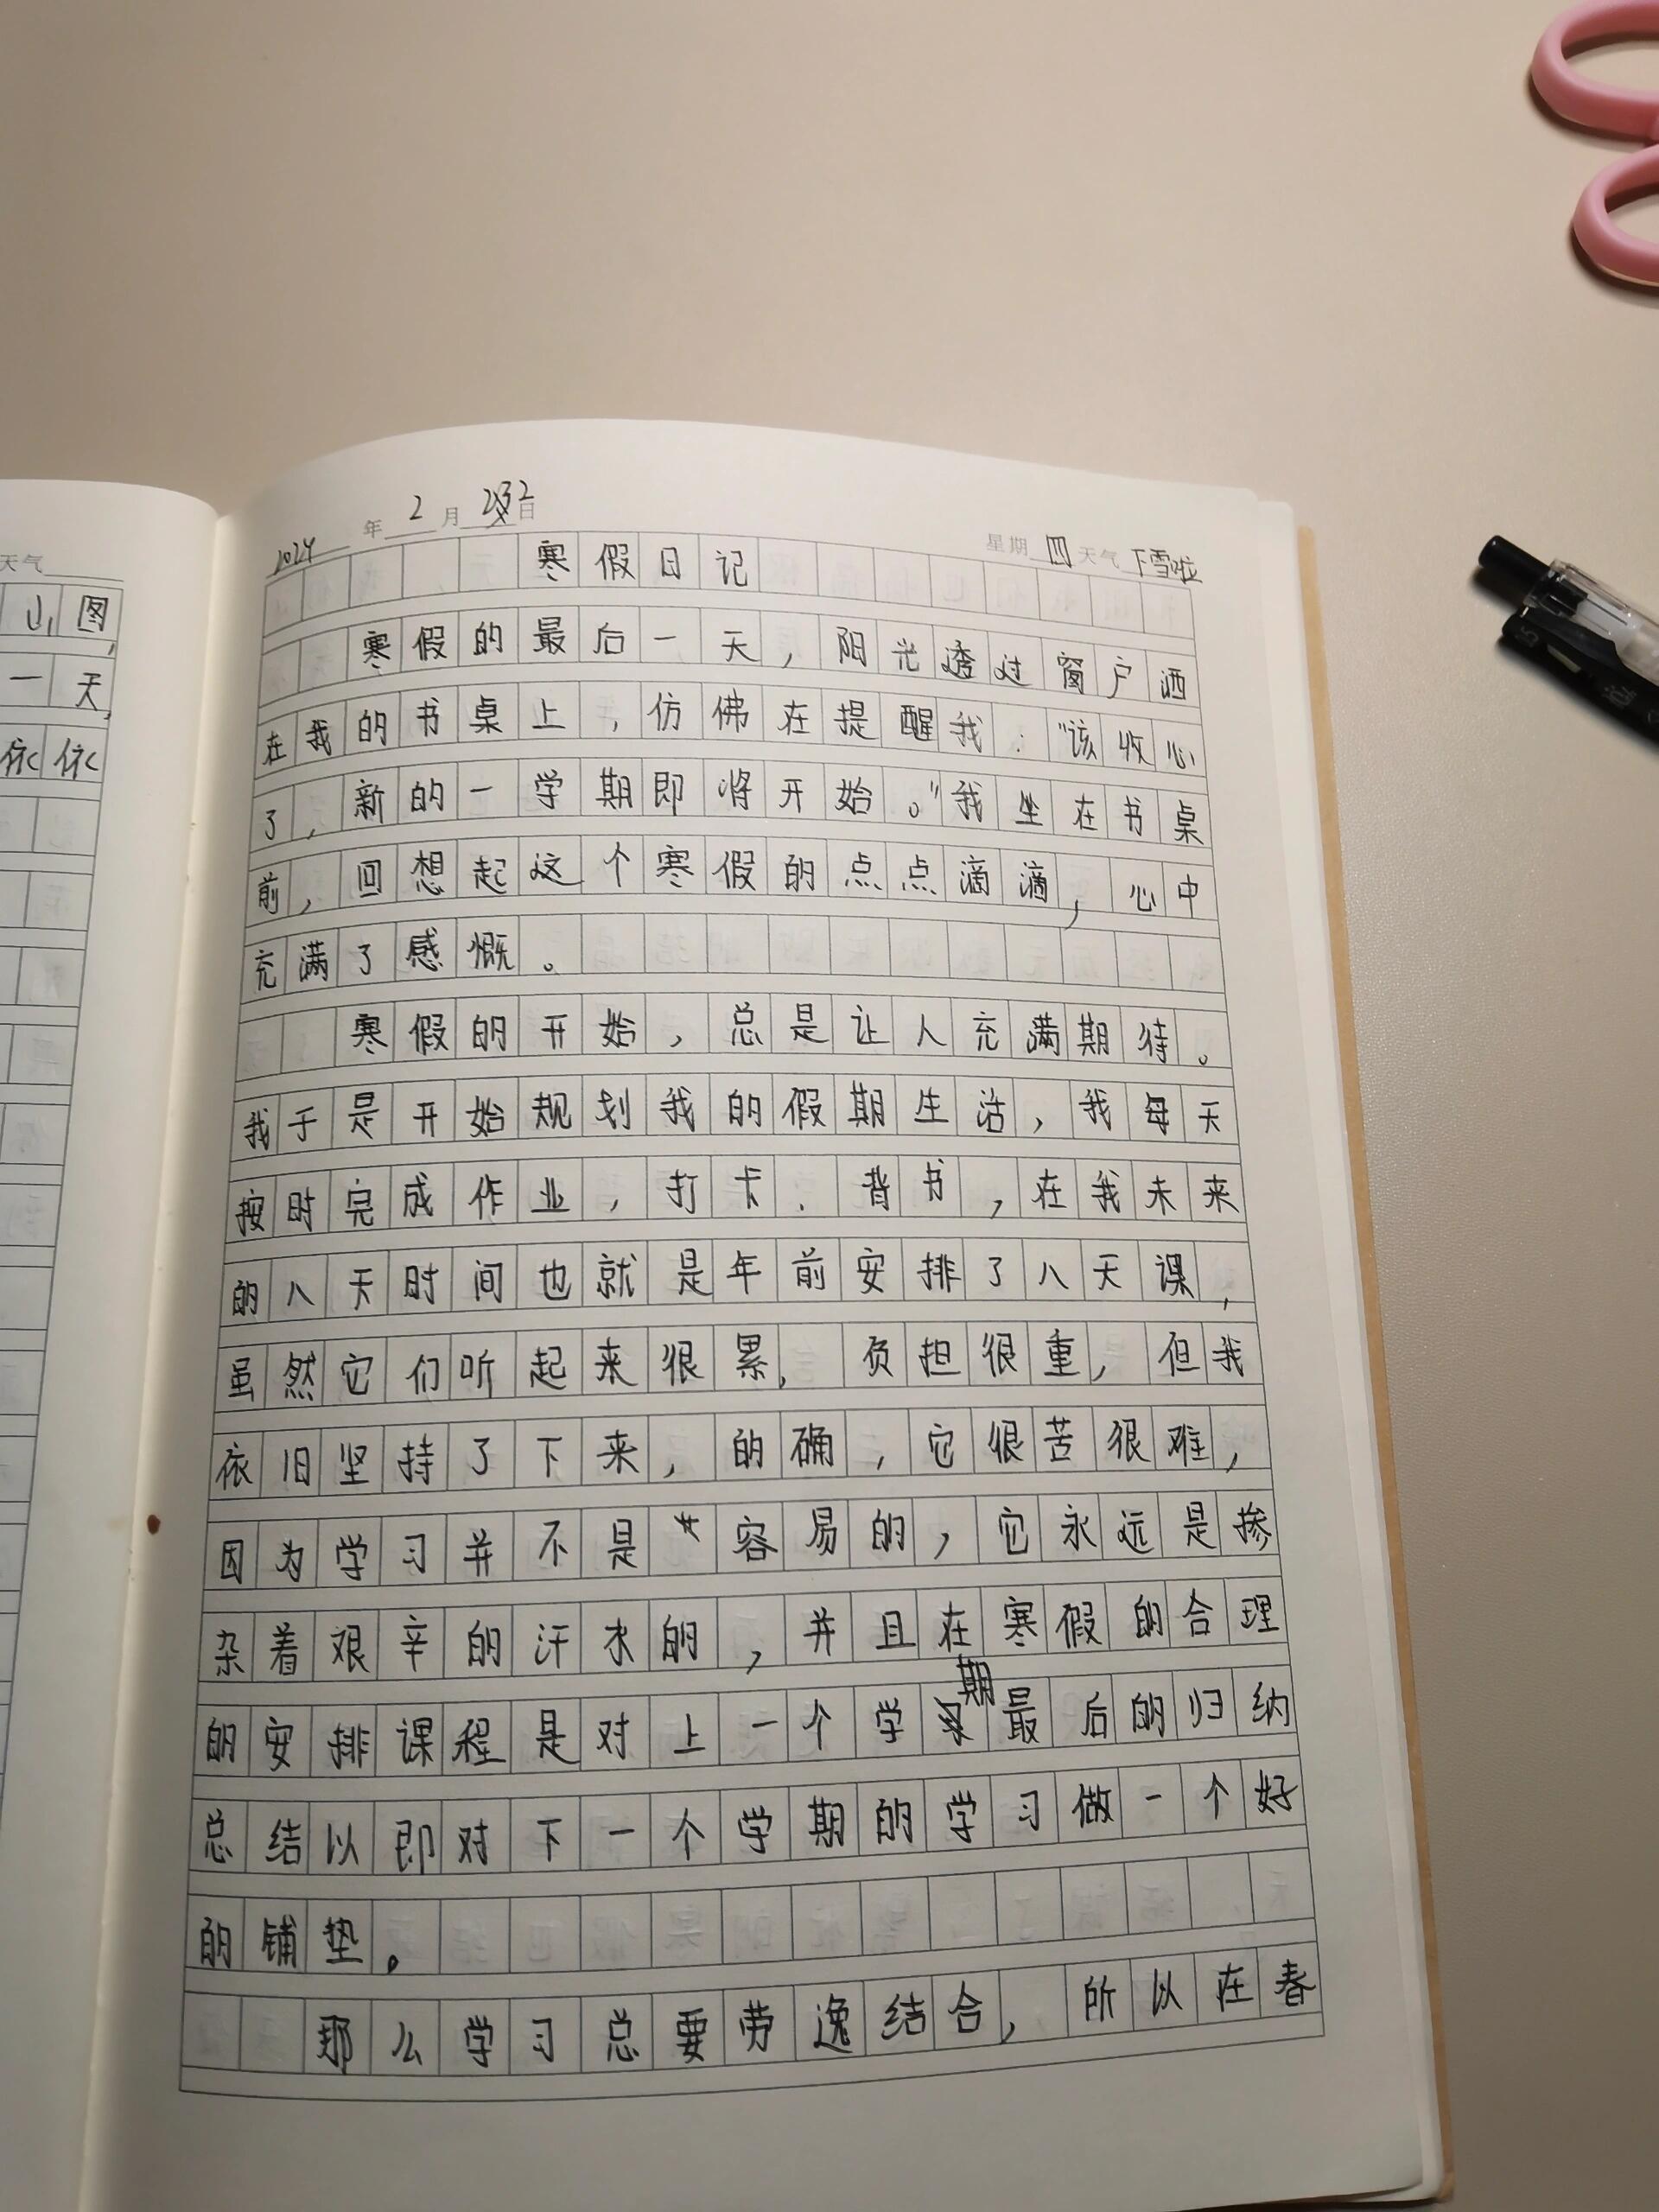 天气
山图,
一天,
依依
2024年2月22日 星期四 天气下雪啦
寒假日记
寒假的最后一天,阳光透过窗户洒
在我的书桌上,仿佛在提醒我:“该收心
了,新的一学期即将开始。”我坐在书桌
前,回想起这个寒假的点点滴滴,心中
充满了感慨。
寒假的开始,总是让人充满期待。
我于是开始规划我的假期生活,我每天
按时完成作业,打卡、背书,在我未来
的八天时间也就是年前安排了八天课,
虽然它们听起来很累、负担很重,但我
依旧坚持了下来,的确,它很苦很难,
因为学习并不是容易的,它永远是掺
杂着艰辛的汗水的,并且在寒假的合理
的安排课程是对上一个学期最后的归纳
总结以即对下一个学期的学习做一个好
的铺垫。
那么学习总要劳逸结合,所以在春